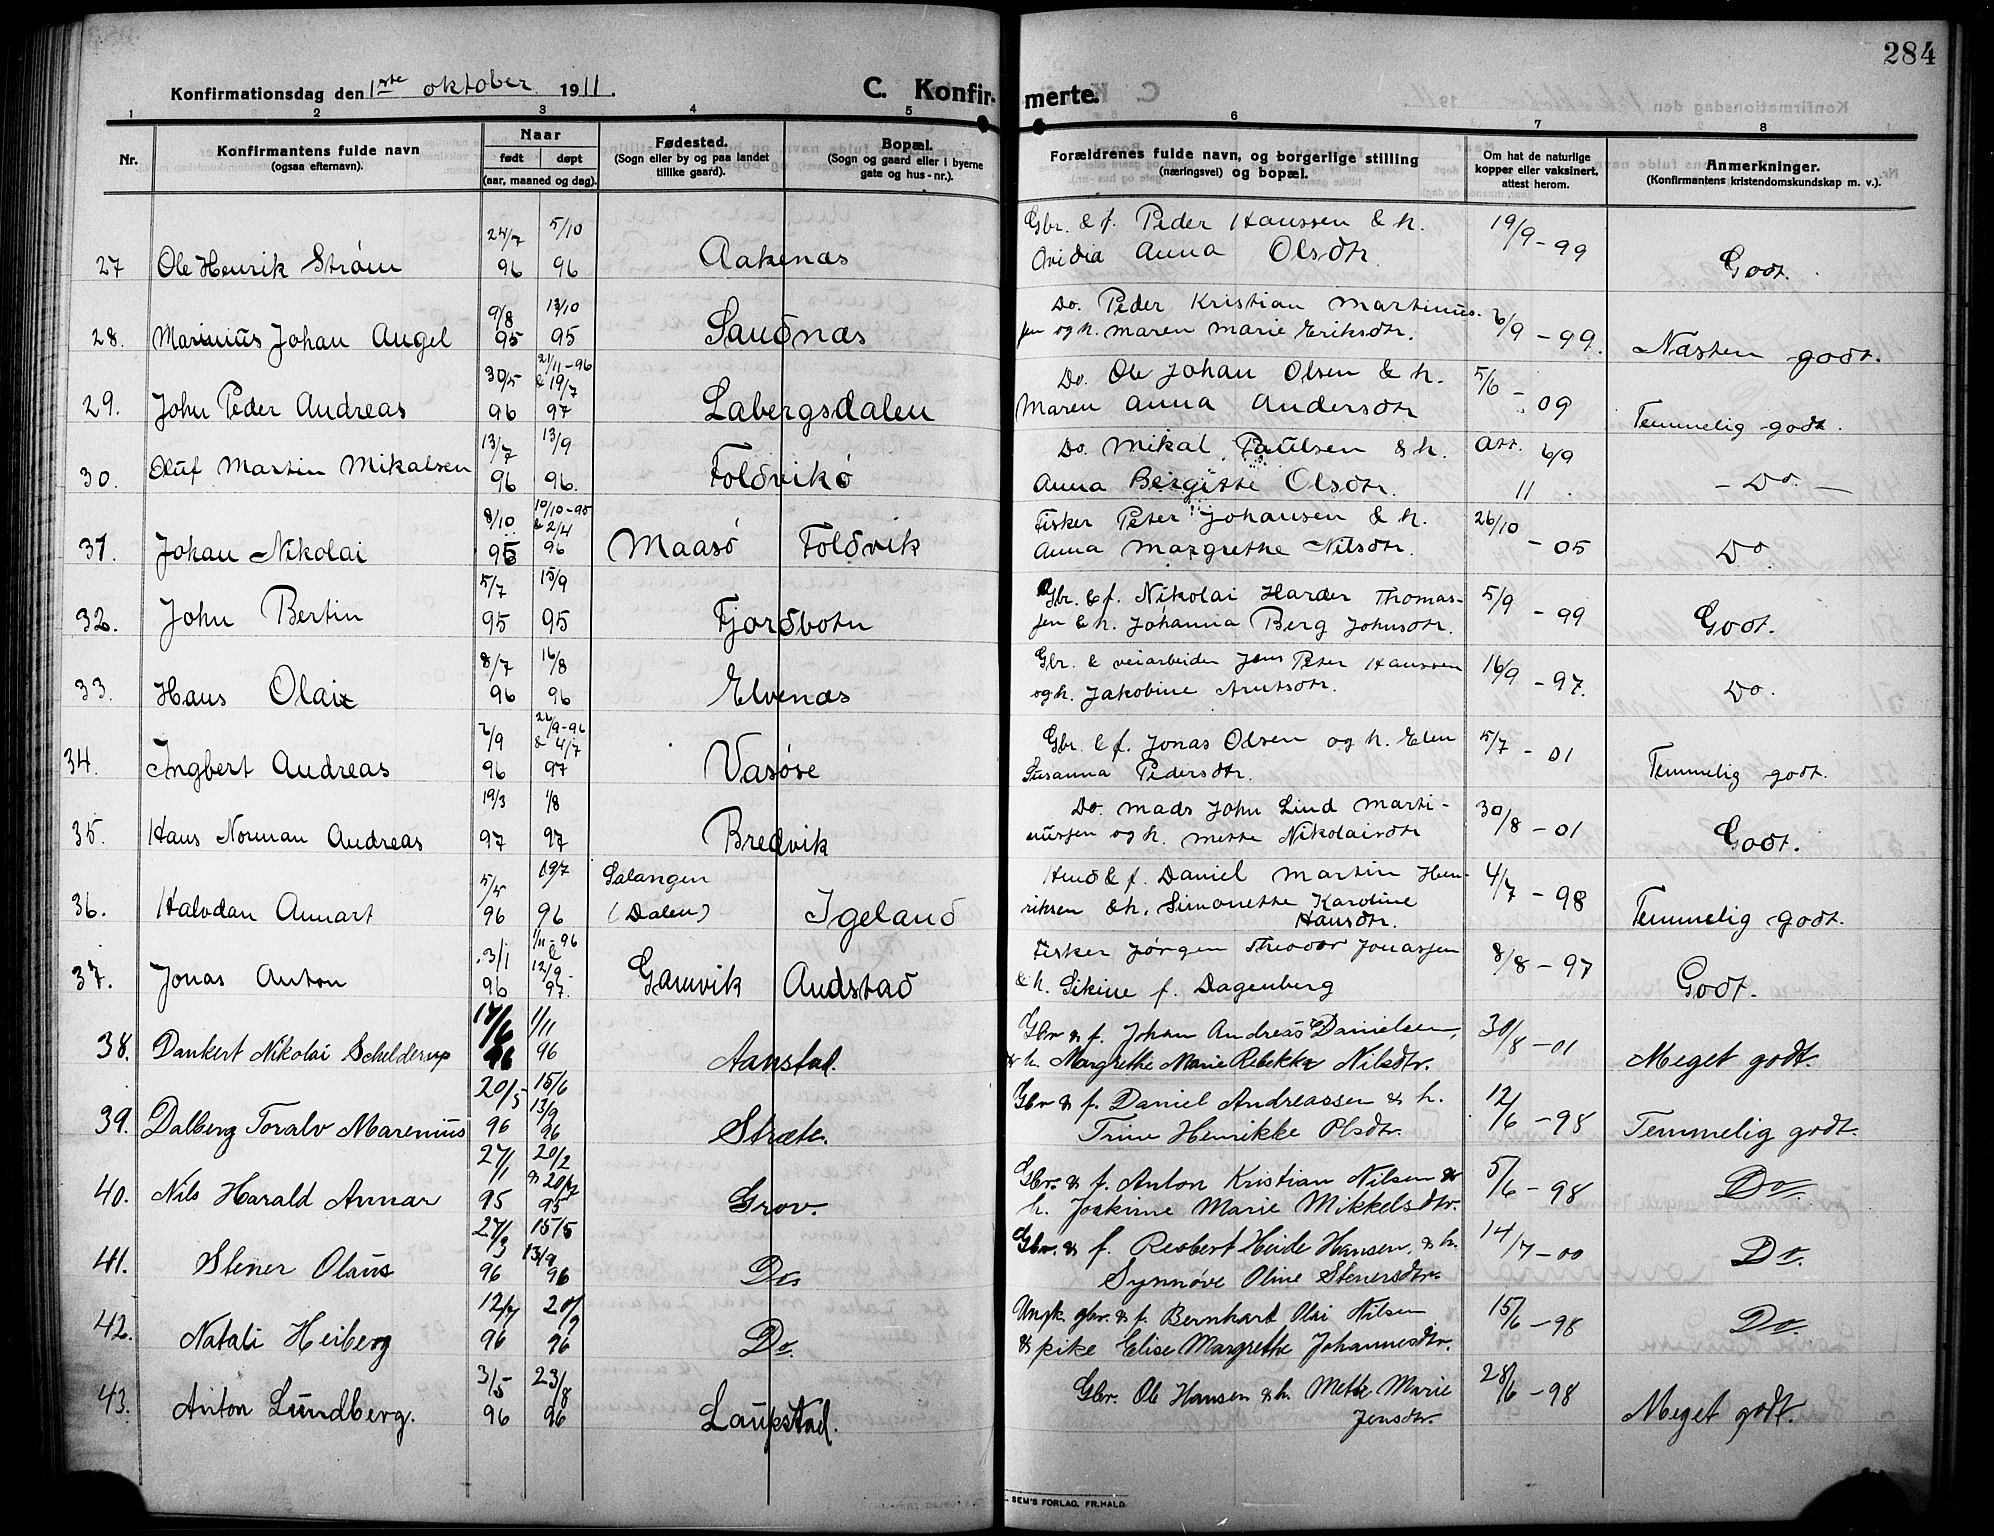 284
Konfirmationsdag den 1ste oktober 1911. C. Konfirmerte.
1 2 3 4 5 6 7 8
Nr. Konfirmantens fulde navn (ogsaa efternavn). Naar født døpt (aar, maaned og dag). Fødested. (Sogn eller by og paa landet tillike gaard). Bopæl. (Sogn og gaard eller i byerne gate og hus-nr.). Forældrenes fulde navn, og borgerlige stilling (næringsvei) og bopæl. Om hat de naturlige kopper eller vaksinert, attest herom. Anmerkninger. (Konfirmantens kristendomskundskap m. v.).
24/7 5/10 Gbr. & f. Peder Hanssen & h. 19/9-99
27 Ole Henrik Strøm 96 96 Aakenæs Ovidia Anna Olsdtr. Godt.
9/8 13/10 Do. Peder Kristian Martinus- 6/9-99.
28. Marinius Johan Angel 95 95 Sandnæs sen og h. Maren Marie Eriksdtr. Næsten godt.
30/5 21/11-96 & 19/7 Do. Ole Johan Olsen & h. 5/6-09
29. John Peder Andreas 96 97 Labergsdalen Maren Anna Andersdtr Temmelig godt.
13/7 13/9 Do. Mikal Paulsen & h. Att. 6/9
30. Oluf Martin Mikalsen 96 96. Foldvikø Anna Bergitte Olsdtr. 11. - Do. -
8/10 10/10-95 & 2/4 Fisker Peter Johansen & h. 26/10-05
31. Johan Nikolai 95 96 Maasø Foldvik Anna Margrethe Nilsdtr. Do.
5/7 15/9 Gbr. & f. Nikolai Harder Thomas- 5/9-99
32. John Bertin 95 95 Fjordbotn sen & h. Johanna Berg Johnsdtr. Godt.
8/7 16/8 Gbr. & veiarbeider Jens Peter Hanssen 16/9-97.
33. Hans Olai 96 96 Elvenæs og h. Jakobine Arntsdtr. Do.
6/9 26/9-96 & 4/7 Gbr. & f. Jonas Olsen og h. Elen 5/7-01
34. Ingbert Andreas 96 97 Vasøse Susanna Pedersdtr. Temmelig godt.
19/3 1/8 Do. Mads John Lind Marti- 30/8-01
35. Hans Norman Andreas 97 97 Bredvik nussen og h. Mette Nikolaisdtr Godt.
5/5 19/7 Salangen Hmd & f. Daniel Martin Hen- 4/7-98
36. Halvdan Annart 96 96 (Dalen) Igeland riksen & h. Simonette Karoline Hansdtr. Temmelig godt.
3/1 1/11-96 & 12/9- Fisker Jørgen Theodor Jonassen 8/8-97
37. Jonas Anton 96 97. Gamvik Andstad & h. Sikine f. Dagenberg Godt.
17/6 1/11 Gbr & f. Johan Andreas Danielsen, 30/8-01
38. Dankert Nikolai Schelderup 96 96 Aanstad. & h. Margrethe Marie Rebekka Nilsdtr. Meget godt.
20/5 15/6 13/9 Gbr & f. Daniel Andreassen & h. 12/6-98
39. Dalberg Toralv Marenius 96 96 Stræte. Trine Henrikke Olsdtr. Temmelig godt.
27/1 20/2 Gbr. & f. Anton Kristian Nilsen & 5/6-98
40. Nils Harald Annar 95 95 Grov. h. Joakime Marie Mikkelsdtr. Do.
27/3 15/5 13/9 Gbr. & f. Resbert Heide Hansen, & h. 14/7-00
41. Stener Olaus 96 96 Do Synnøve Oline Stenersdtr. Do.
12/7 20/9 Ungk. gbr. & f. Bernhart Olai Nilsen 15/6-98
42. Natali Heiberg 96 96 Do. & pike Elise Margrethe Johannesdtr. Do.
3/5 23/8 Gbr. Ole Hansen & h. Mette Marie 28/6-98
43. Anton Lundberg. 96 96 Laupstad. Jensdtr. Meget godt.
SEM'S FORLAG, FR.HALD